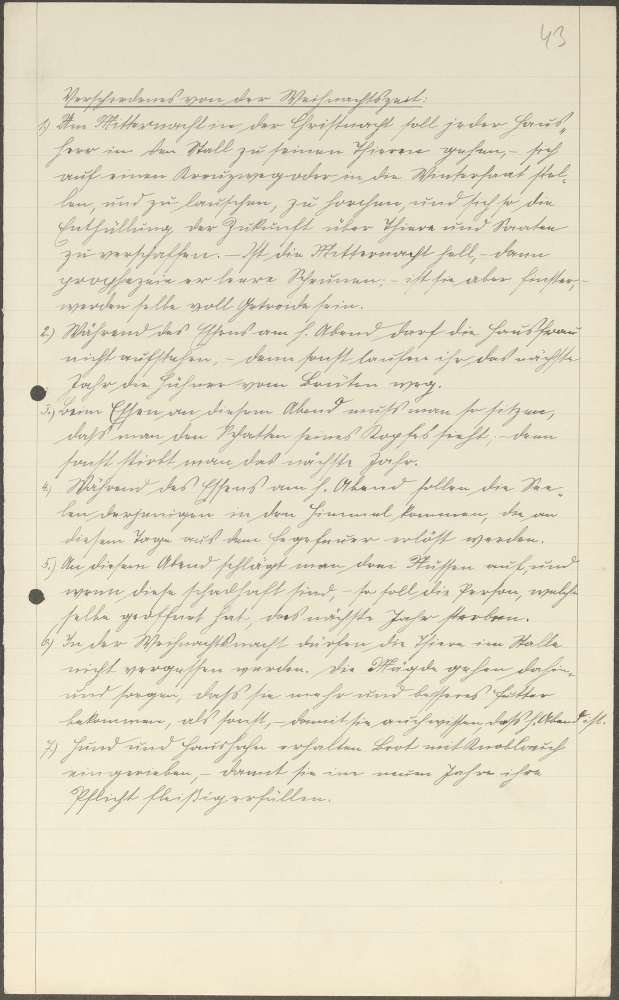 43
Verschiedenes von der Weihnachtszeit:
1) Um Mitternacht in der Christnacht soll jeder Haus-
herr in den Stall zu seinen Thieren gehen, – sich
auf einen Kreuzweg oder in die Wintersaat stel-
len, und zu lauschen, zu horchen, und sich so die
Enthüllung der Zukunft über Thiere und Saaten
zu verschaffen. – Ist die Mitternacht hell, – dann
prophezeie er leere Scheunen; – ist sie aber finster, –
werden selbe voll Getreide sein.
2) Während des Essens am h. Abend darf die Hausfrau
nicht aufstehen, – denn sonst laufen ihr das nächste
Jahr die Hühner vom Brüten weg.
3.) Beim Essen an diesem Abend muß man so sitzen,
daß man den Schatten seines Kopfes sieht, – denn
sonst stirbt man das nächste Jahr.
4.) Während des Essens am h. Abend sollen die See-
len derjenigen in den Himmel kommen, die an
diesem Tage aus dem Fegefeuer erlöst werden.
5.) An diesem Abend schlägt man drei Nüssen auf, und
wenn diese schadhaft sind, – so soll die Person, welche
selbe geöffnet hat, das nächste Jahr sterben.
6) In der Weihnachtsnacht dürfen die Thiere im Stalle
nicht vergessen werden. Die Mägde gehen dahin,
und sorgen, daß sie mehr und besseres Futter
bekommen, als sonst, – damit sie auch wissen, daß h. Abend ist.
7) Hund und Haushahn erhalten Brot mit Knoblauch
eingerieben, – damit sie im neuen Jahre ihre
Pflicht fleißig erfüllen.